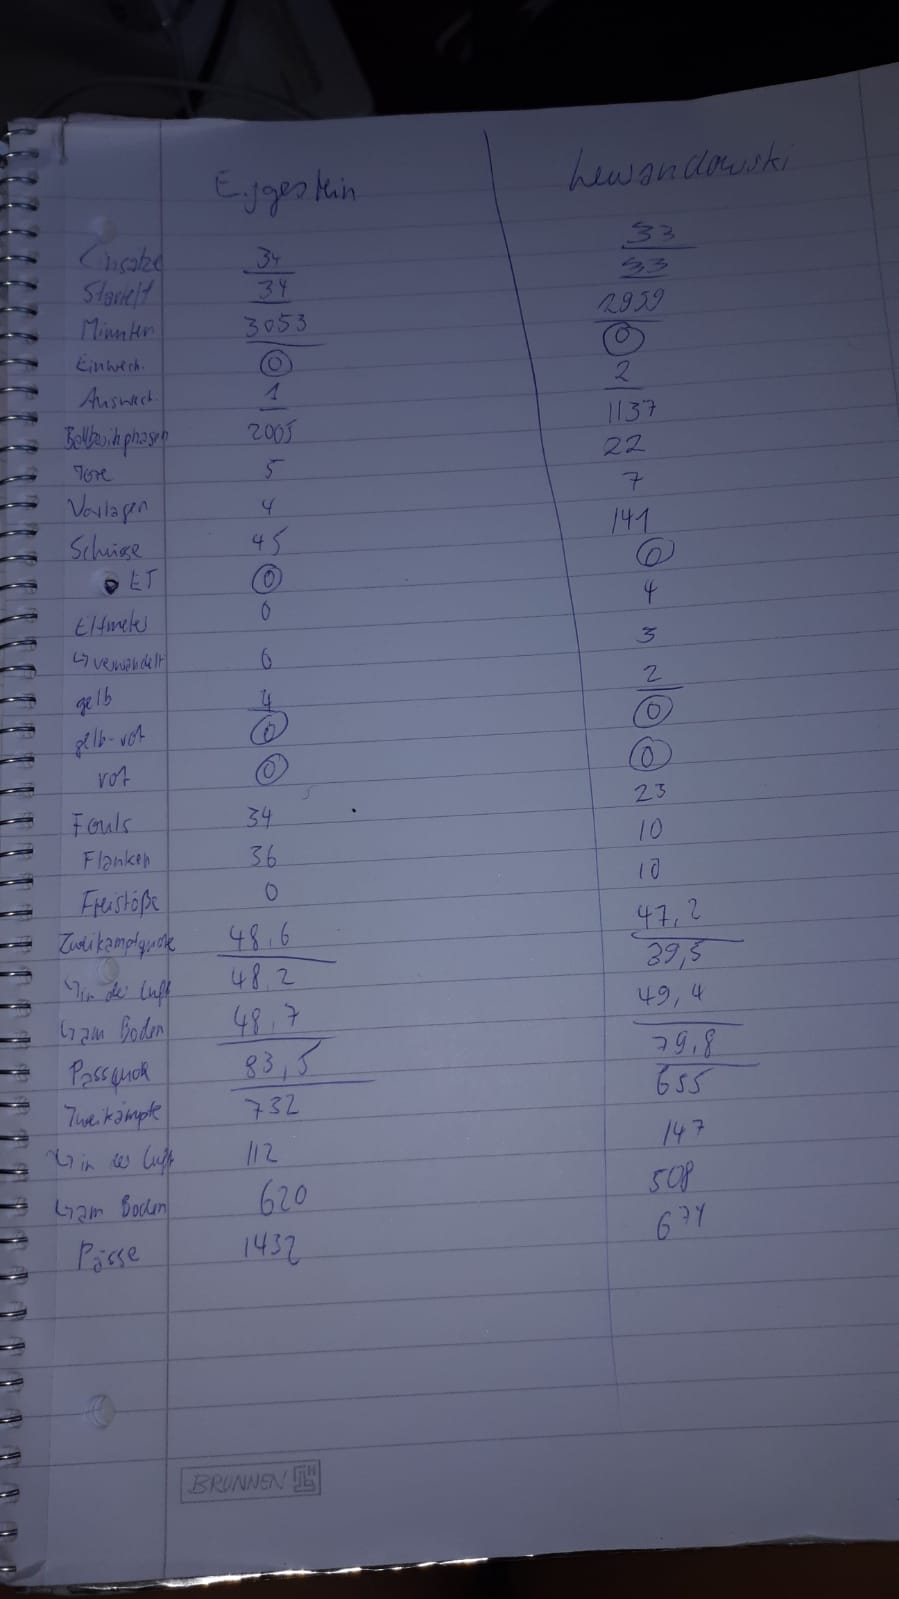 Eggestein Lewandowski
Einsätze 34 33
Startelf 34 33
Minuten 3053 2959
Einwech. 0 0
Auswech. 1 2
Ballbesitzphasen 2005 1137
Tore 5 22
Vorlagen 4 7
Schüsse 45 141
ET 0 0
Elfmeter 0 4
↳ verwandelt 0 3
gelb 4 2
gelb-rot 0 0
rot 0 0
Fouls 34 23
Flanken 36 10
Freistöße 0 10
Zweikampfquote 48,6 47,2
↳ in der Luft 48,2 39,5
↳ am Boden 48,7 49,4
Passquote 83,5 79,8
Zweikämpfe 732 655
↳ in der Luft 112 147
↳ am Boden 620 508
Pässe 1432 674
BRUNNEN